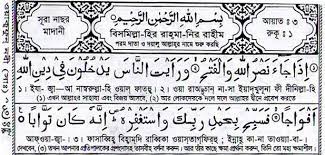 সূরা নাছর
মাদানী
بِسْمِ اللّٰهِ الرَّحْمٰنِ الرَّحِيْمِ
বিসমিল্লা-হির রাহ্‌মা-নির রাহীম
পরম দাতা ও দয়ালু আল্লাহ্‌র নামে শুরু করছি
আয়াত : ৩
রুকূ : ১
اِذَا جَآءَ نَصْرُ اللّٰهِ وَالْفَتْحُ وَرَاَيْتَ النَّاسَ يَدْخُلُوْنَ فِيْ دِيْنِ اللّٰهِ
১। ইযা-জ্বা—আ নাছ্‌রুল্লা-হি ওয়াল্ ফাত্‌হু। ২। ওয়া রাআইতান্না-সা ইয়াদ্‌খুলূনা ফী দীনিল্লা-হি
(১) যখন আল্লাহ্‌র সাহায্য এবং বিজয় আসবে, (২) আর লোকদেরকে দলে দলে আল্লাহ্‌র দ্বীনে প্রবেশ করতে
اَفْوَاجًا فَسَبِّحْ بِحَمْدِ رَبِّكَ وَاسْتَغْفِرْهُ اِنَّهٗ كَانَ تَوَّابًا
আফ্‌ওয়া-জ্বা-। ৩। ফাসাব্বিহ্ বিহাম্‌দি রাব্বিকা ওয়াস্‌তাগ্‌ফির্‌হু; ইন্নাহূ কা-না তাওয়্যা-বা-।
দেখবেন, (৩) তখন আপনার প্রতিপালকের